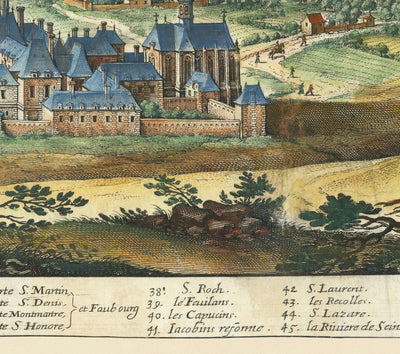 rte S. Martin. 38. S. Roch. 42 S. Laurent.
te S. Denis. et Faubourg 39. le Fuilans. 43. les Recolles.
te Montmartre, 40. les Capucins. 44. S. Lazare.
te S. Honore. 41. Iacobins reforme. 45. la Riviere de Sein